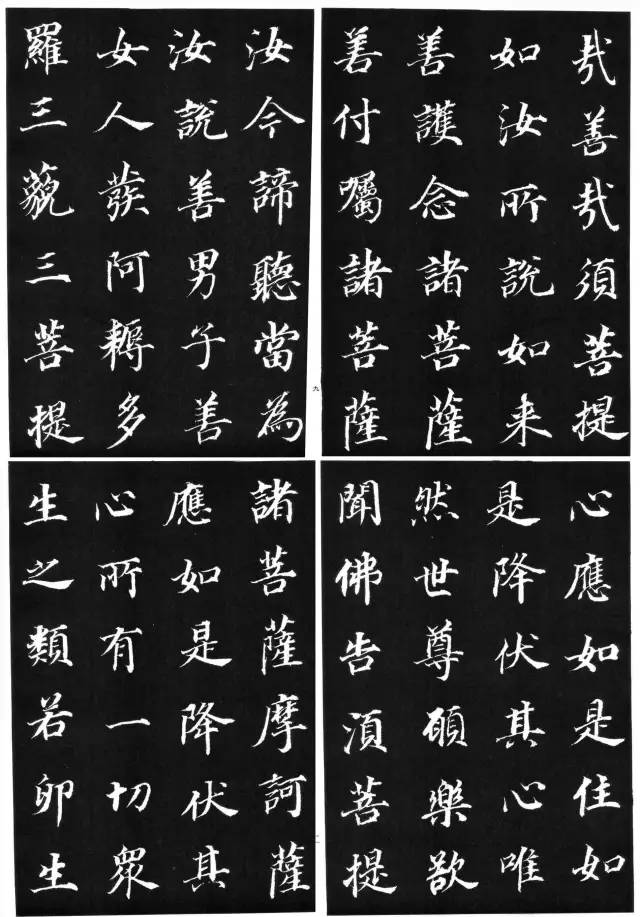 哉善哉須菩提
如汝所說如来
善護念諸菩薩
善付囑諸菩薩
汝今諦聽當為
汝說善男子善
女人發阿耨多
羅三藐三菩提
心應如是住如
是降伏其心唯
然世尊願樂欲
聞佛告須菩提
諸菩薩摩訶薩
應如是降伏其
心所有一切眾
生之類若卵生
九